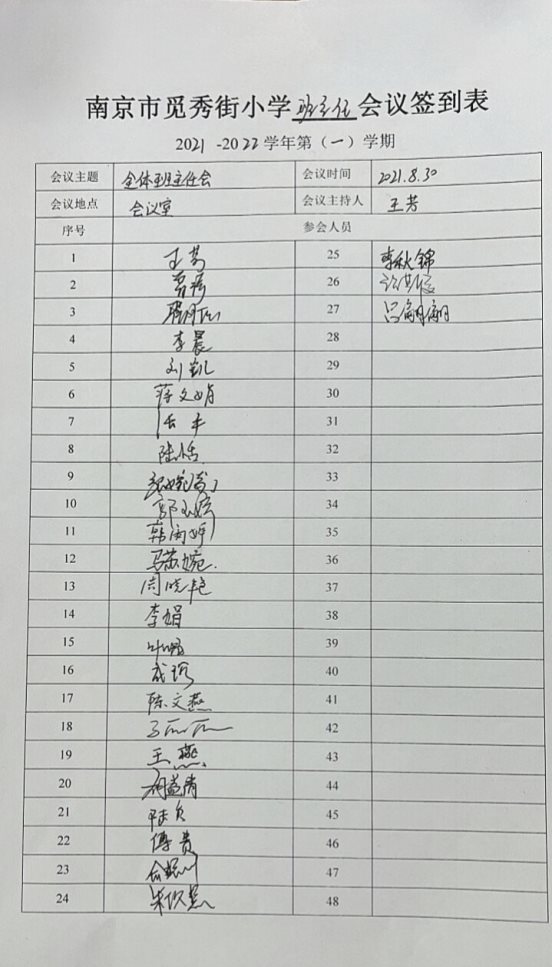 南京市觅秀街小学班主任会议签到表
2021-2022学年第（一）学期
会议主题 全体班主任会 会议时间 2021.8.30
会议地点 会议室 会议主持人 王芳
序号 参会人员
1 王芳 25 李秋锦
2 26
3 27 吕翩翩
4 李晨 28
5 刘凯 29
6 蒋文娟 30
7 31
8 陆恬 32
9 33
10 34
11 35
12 马苏婉 36
13 周晓艳 37
14 李娟 38
15 39
16 40
17 陈文燕 41
18 42
19 王燕 43
20 44
21 陆贞 45
22 傅贵 46
23 47
24 48